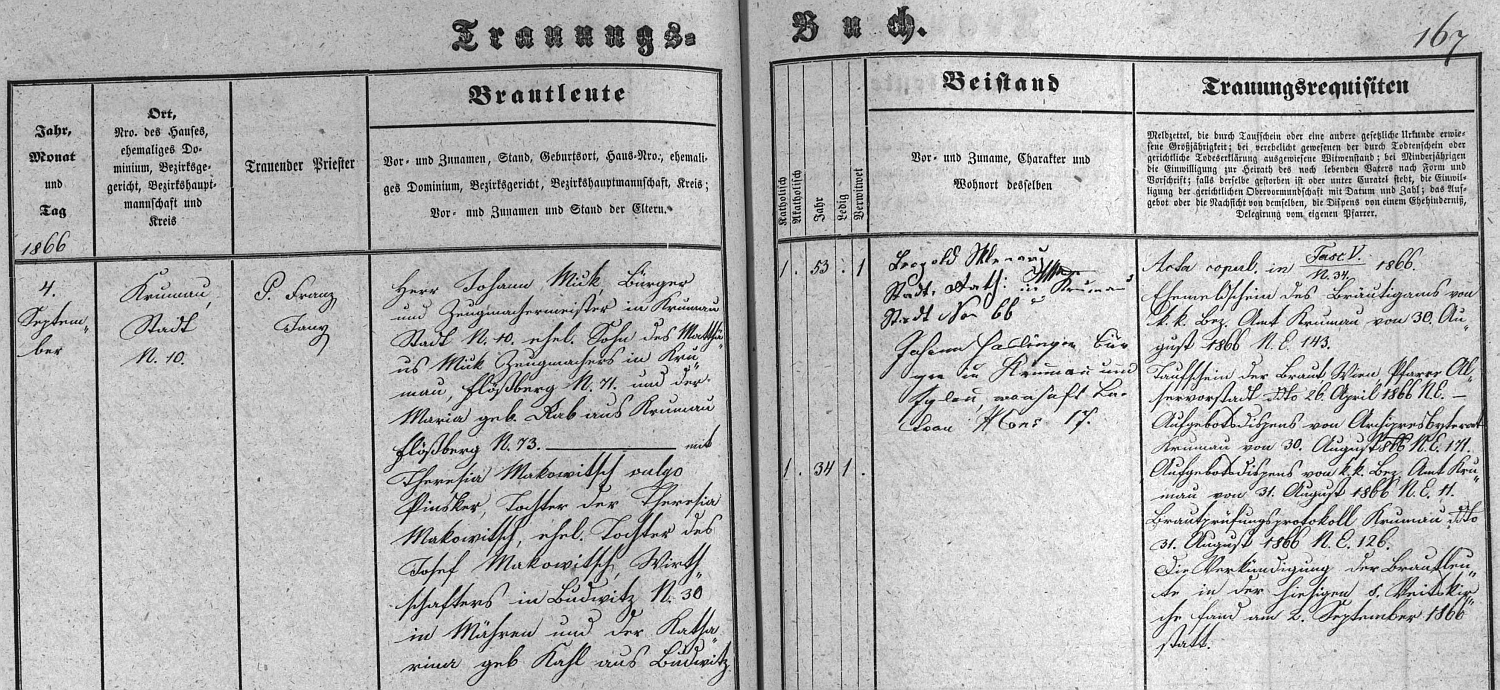 Trauungs-
Buch.
167
Jahr,
Monat
und
Tag
1866
Ort,
Nro. des Hauses,
ehemaliges Do-
minium, Bezirksge-
gericht, Bezirkshaupt-
mannschaft und
Kreis
Trauender Priester
Brautleute
Vor- und Zunamen, Stand, Geburtsort, Haus-Nro., ehemali-
ges Dominium, Bezirksgericht, Bezirkshauptmannschaft, Kreis;
Vor- und Zunamen und Stand der Eltern.
Katholisch
Akatholisch
Jahr
Ledig
Verwitwet
Beistand
Vor- und Zuname, Charakter und
Wohnort desselben
Trauungsrequisiten
Meldzettel, die durch Taufschein oder eine andere gesetzliche Urkunde erwie-
sene Großjährigkeit; bei verehelicht gewesenen der durch Todenschein oder
gerichtliche Todeserklärung ausgewiesene Witwenstand; bei Minderjährigen
die Einwilligung zur Heirath des noch lebenden Vaters nach Form und
Vorschrift; falls derselbe gestorben ist oder unter Curatel steht, die Einwil-
ligung der gerichtlichen Obervormundschaft mit Datum und Zahl; das Auf-
gebot oder die Nachsicht von demselben, die Dispens von einem Ehehinderniß,
Delegirung vom eigenen Pfarrer.
4.
Septem-
ber
Krumau,
Stadt
N. 10.
P. Franz
Herr Johann Muk, Bürger
und Zeugmachermeister in Krumau
Stadt N. 10. ehel. Sohn des Matthä-
us Muk Zeugmachers in Kru-
mau, Flößberg N. 71. und der
Maria geb. Rab aus Krumau
Flößberg N. 73. mit
Theresia Makowitsch vulgo
Pinsker, Tochter der Theresia
Makowitsch, ehel. Tochter des
Josef Makowitsch, Wirth-
schafters in Budwitz N. 30
in Mähren und der Katha-
rina geb Kahl aus Budwitz.
1. 53. 1
1. 34 1.
Leopold
Stadt in Krumau
Stadt 66
Johann Haslinger Bür-
ger in Krumau und
17.
Acta copul. in Fasc. V. N. 34. 1866.
Ehemeldschein des Bräutigams von
k. k. Bez. Amt Krumau von 30. Au-
gust 1866 N. E. 143.
Taufschein der Braut Wien, Pfarre Al-
servorstadt dto 26. April 1866 N. E. —
Aufgebotsdispens von Archipresbyterat
Krumau von 30. August 1866 N. E. 171.
Aufgebotsdispens von k. k. Bez. Amt Kru-
mau von 31. August 1866 N. E. 11.
Brautprüfungsprotokoll Krumau dto
31. August 1866 N. E. 126.
Die Verkündigung der Brautleu-
te in der hiesigen S. Veitskir-
che fand am 2. September 1866
statt.